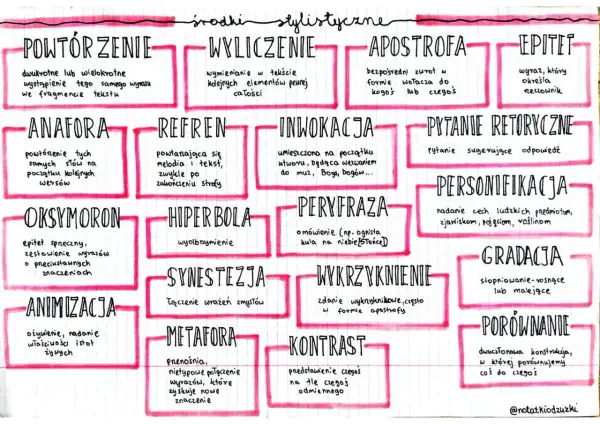 środki stylistyczne
POWTÓRZENIE
dwukrotne lub wielokrotne
wystąpienie tego samego wyrazu
we fragmencie tekstu
WYLICZENIE
wymienianie w tekście
kolejnych elementów pewnej
całości
APOSTROFA
bezpośredni zwrot w
formie wołacza do
kogoś lub czegoś
EPITET
wyraz, który
określa
rzeczownik
ANAFORA
powtórzenie tych
samych słów na
początku kolejnych
wersów
REFREN
powtarzająca się
melodia i tekst,
zwykle po
zakończeniu strofy
INWOKACJA
umieszczona na początku
utworu, będąca wezwaniem
do muz, Boga, bogów...
PYTANIE RETORYCZNE
pytanie sugerujące odpowiedź
PERSONIFIKACJA
nadanie cech ludzkich przedmiotom,
zjawiskom, pojęciom, roślinom
OKSYMORON
epitet sprzeczny,
zestawienie wyrazów
o przeciwstawnych
znaczeniach
HIPERBOLA
wyolbrzymienie
PERYFRAZA
omówienie (np. ognista
kula na niebie[słońce])
GRADACJA
stopniowanie-rosnące
lub malejące
SYNESTEZJA
łączenie wrażeń zmysłów
WYKRZYKNIENIE
zdanie wykrzyknikowe, często
w formie apostrofy
ANIMIZACJA
ożywienie, nadanie
właściwości istot
żywych
METAFORA
przenośnia,
nietypowe połączenie
wyrazów, które
zyskuje nowe
znaczenie
KONTRAST
przedstawienie czegoś
na tle czegoś
odmiennego
PORÓWNANIE
dwuczłonowa konstrukcja,
w której porównujemy
coś do czegoś
@notatkiodzuzki